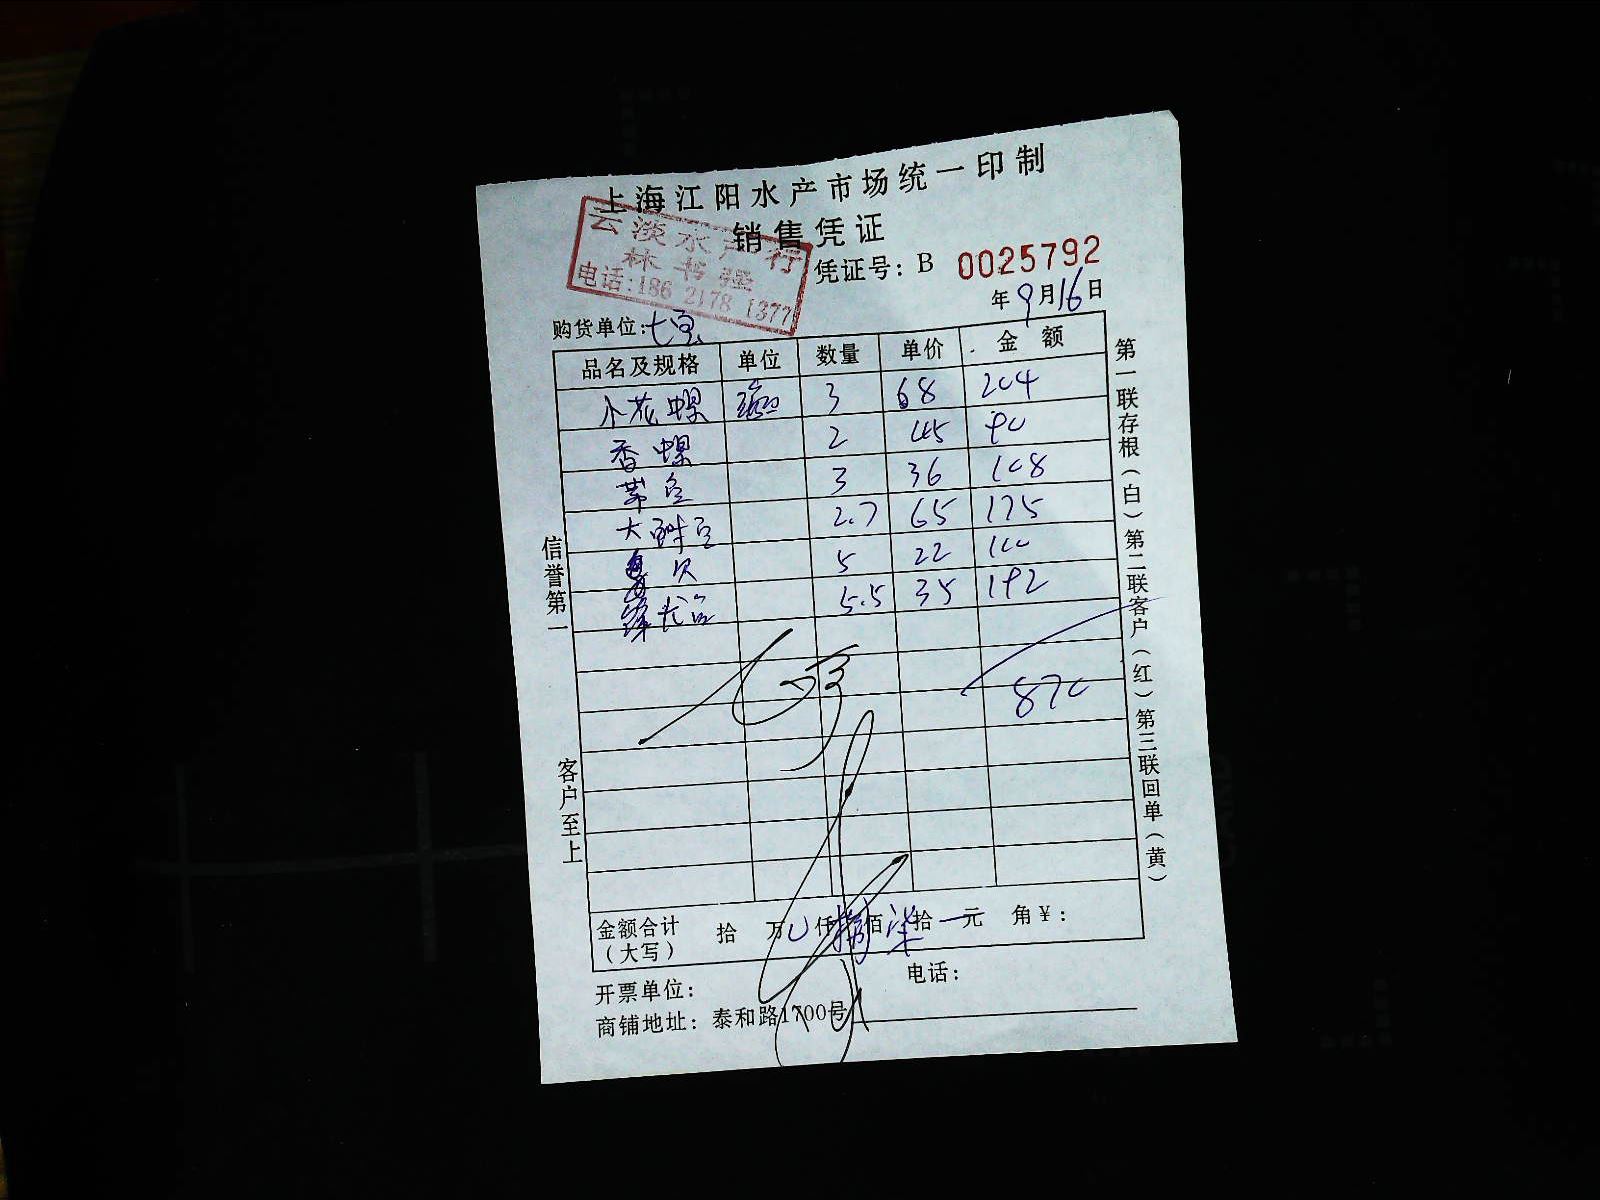 上海江阳水产市场统一印制
销售凭证
云淡水产行
林书强
电话:186 2178 1377
凭证号: B 0025792
年9月16日
购货单位:七
品名及规格 单位 数量 单价 金额
小花螺 3 68 204
香螺 2 45 90
3 36 108
大 2.7 65 175
贝 5 22 100
5.5 35 192
870
金额合计(大写) 拾 万 仟 捌佰柒拾 元 角 ¥:
开票单位: 电话:
商铺地址: 泰和路1700号
信誉第一 客户至上
第一联存根(白)第二联客户(红)第三联回单(黄)